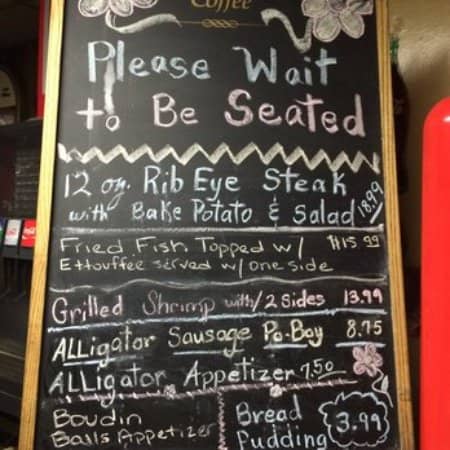 Coffee
Please Wait
to Be Seated
12 oz. Rib Eye Steak
with Bake Potato & Salad 18.99
Fried Fish Topped w/ $15.99
Ettouffee served w/ one side
Grilled Shrimp with/2 Sides 13.99
Alligator Sausage Po-Boy 8.75
Alligator Appetizer 7.50
Boudin
Balls Appetizer
Bread
Pudding
3.99